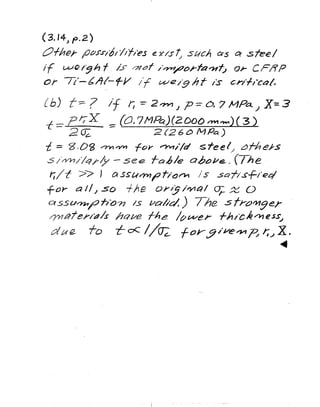 (3.14, p.2)
Other possibilities exist, such as a steel
if weight is not important, or CFRP
or Ti-6Al-4V if weight is critical.
(b) t = ? if r₁ = 2 m, p = 0.7 MPa, X = 3
t = p r₁ X / 2 σ_c = (0.7 MPa)(2000 mm)(3) / 2(260 MPa)
t = 8.08 mm for mild steel, others
similarly – see table above. (The
r₁/t >> 1 assumption is satisfied
for all, so the original σ_r ≈ 0
assumption is valid.) The stronger
materials have the lower thickness,
due to t ∝ 1/σ_c for given p, r₁, X.
◄